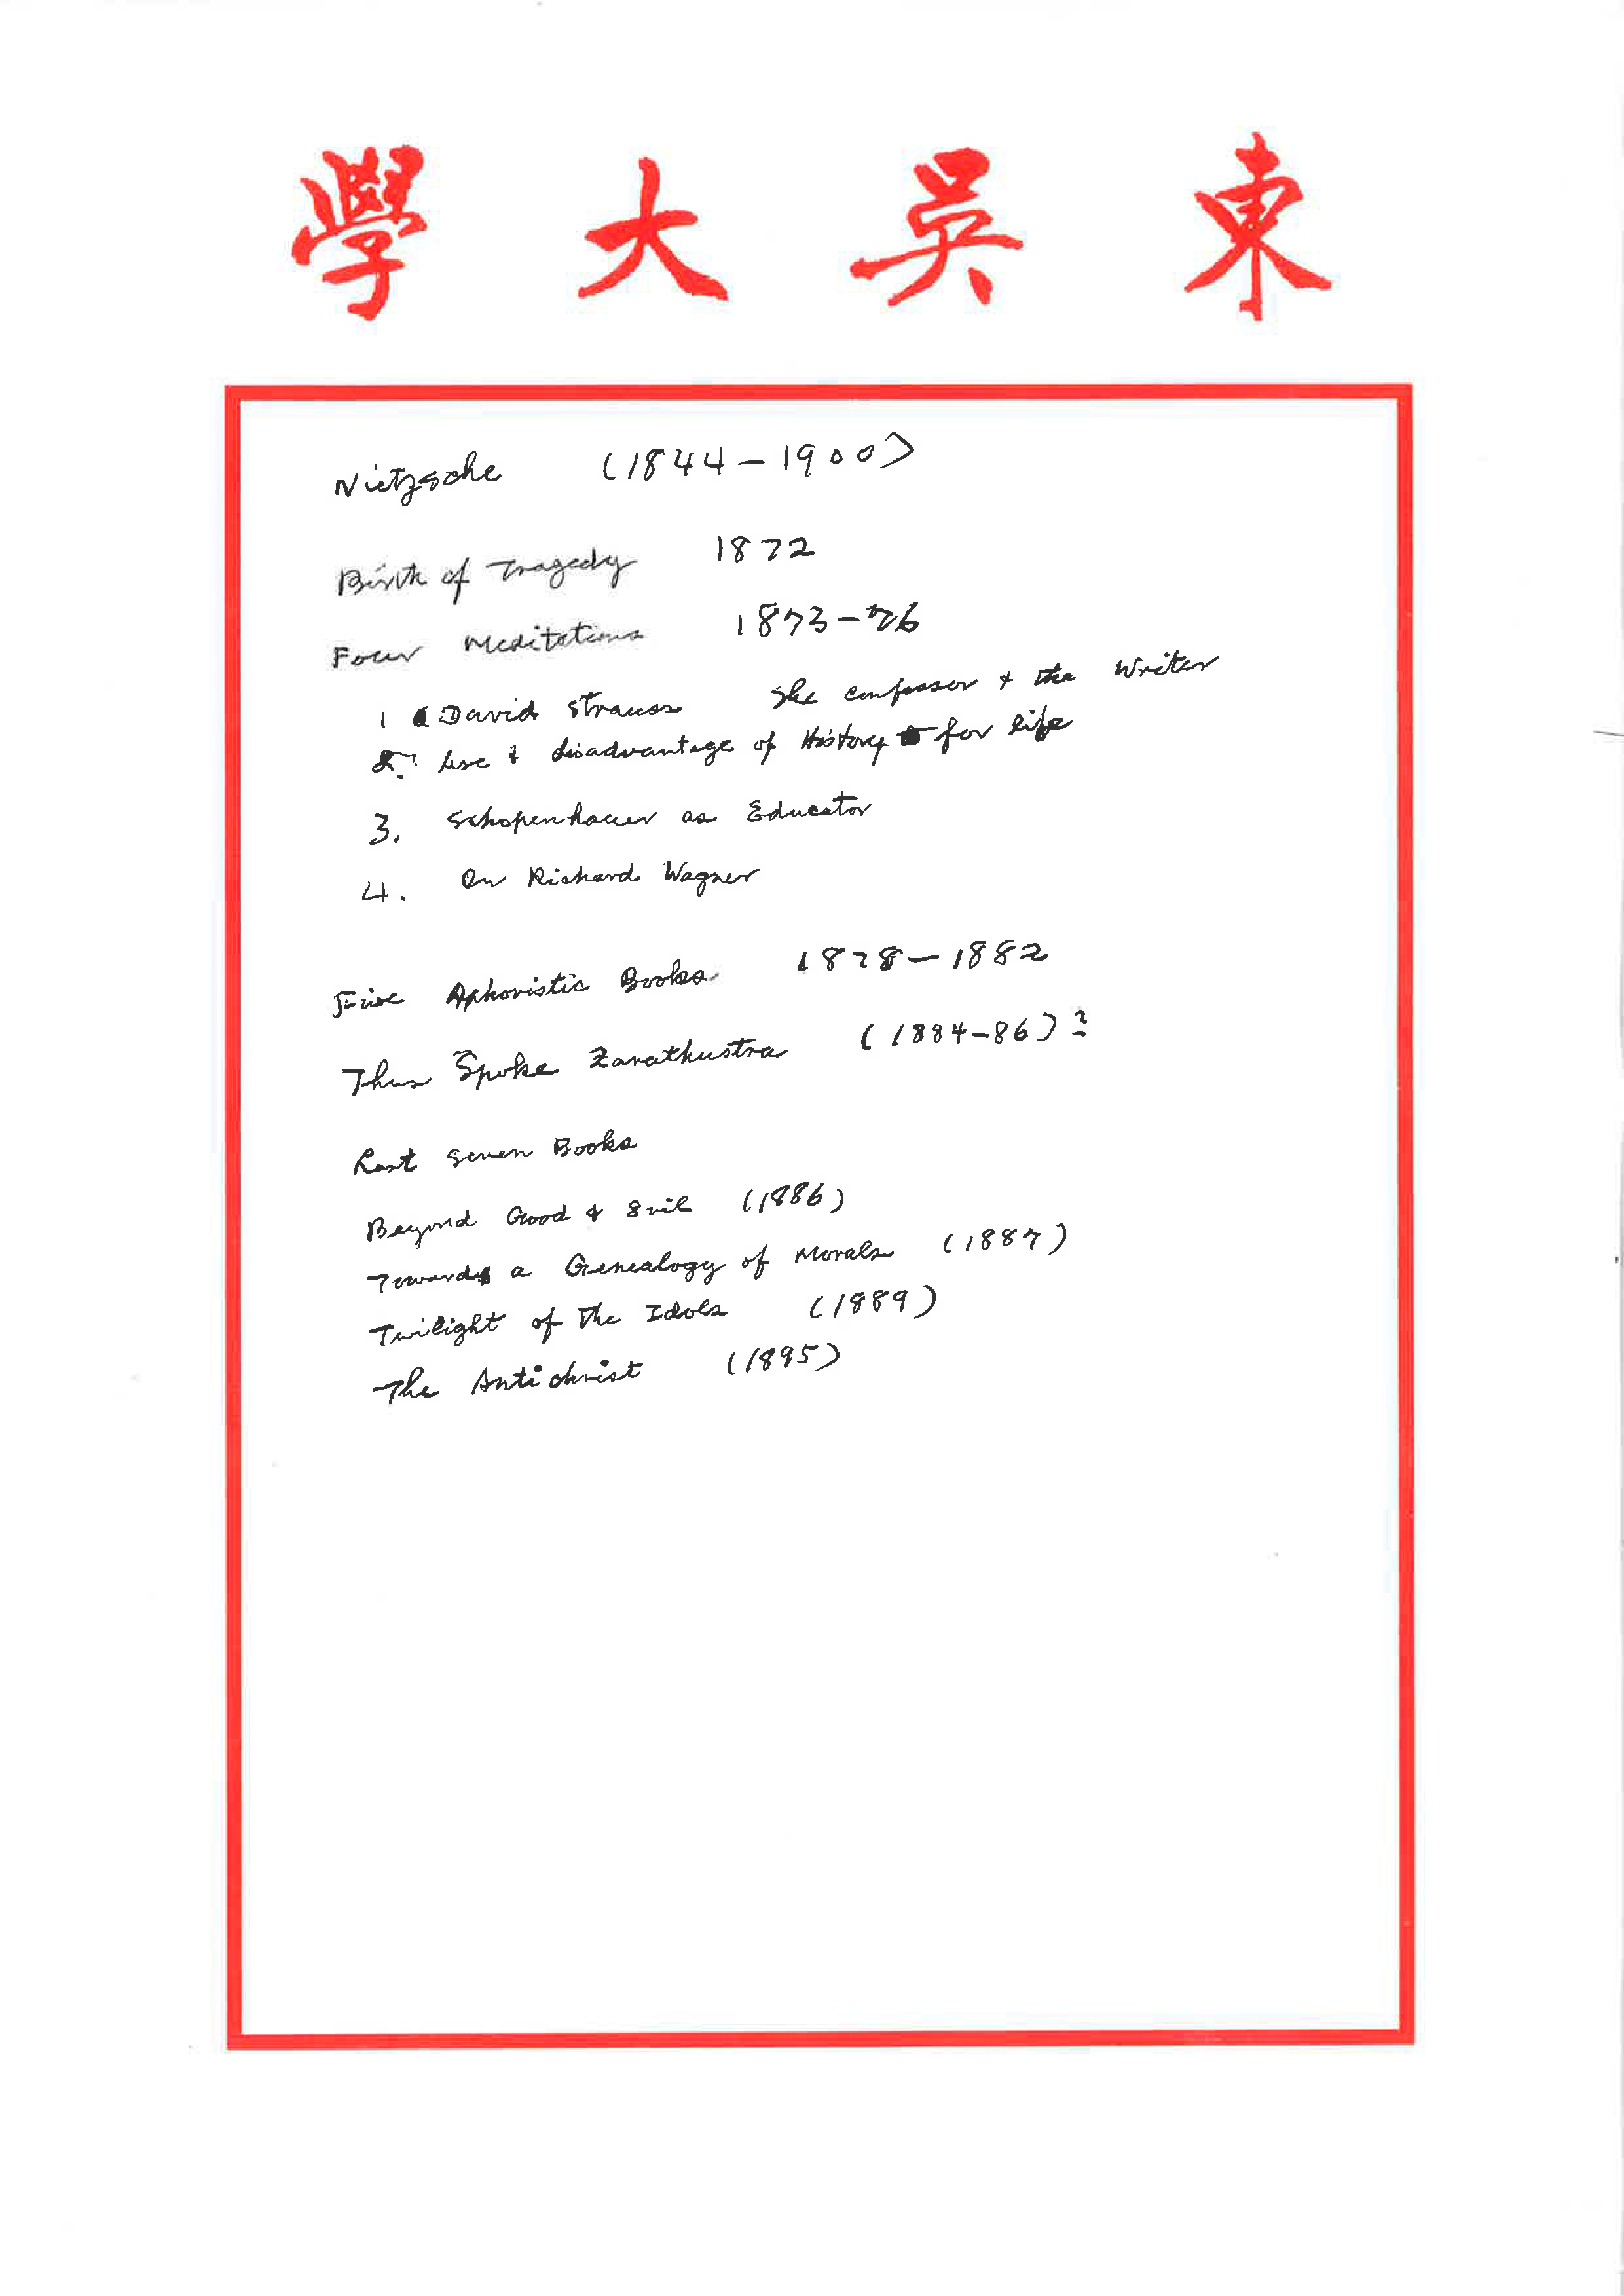 東吳大學
Nietzsche (1844-1900)
Birth of Tragedy 1872
Four Meditations 1873-76
1 David Strauss The confessor & the Writer
2. Use & disadvantage of History for life
3. Schopenhauer as Educator
4. On Richard Wagner
Five Aphoristic Books 1878-1882
Thus Spoke Zarathustra (1884-86)?
Last seven Books
Beyond Good & Evil (1886)
Towards a Genealogy of Morals (1887)
Twilight of the Idols (1889)
The Antichrist (1895)